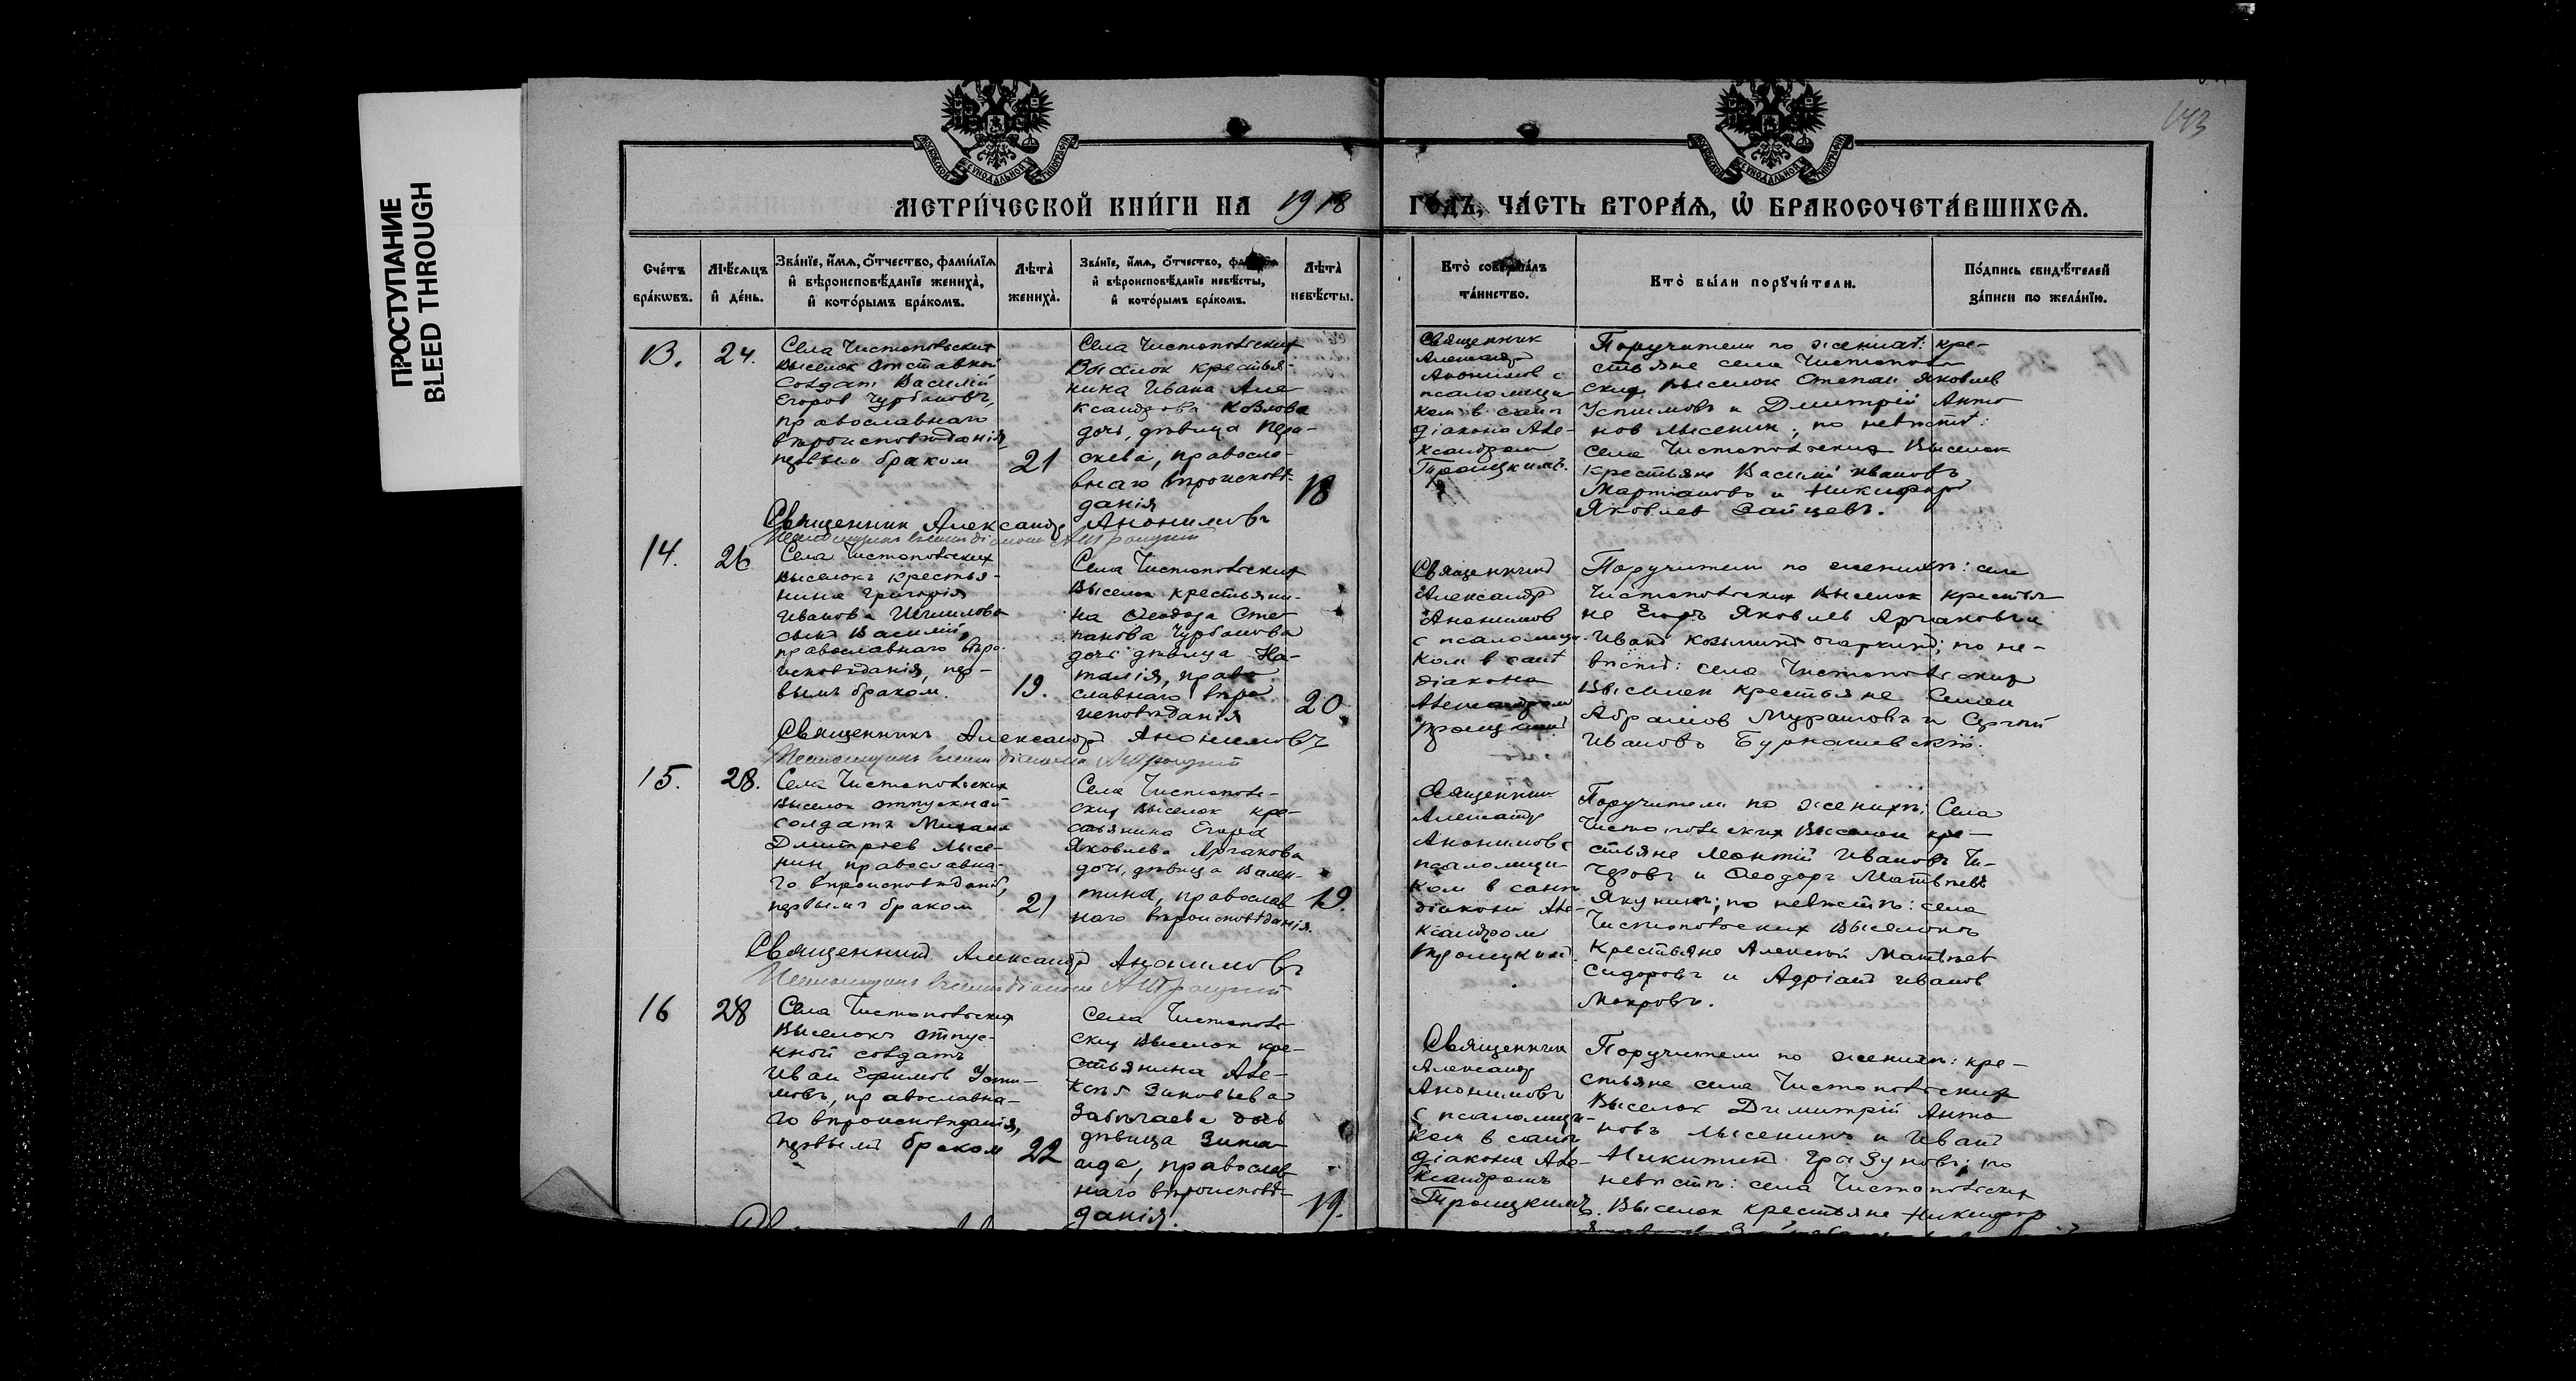 ПРОСТУПАНИЕ
BLEED THROUGH
143
МОСКОВСКОЙ СѴНОДАЛЬНОЙ ТИПОГРАФІИ
МОСКОВСКОЙ СѴНОДАЛЬНОЙ ТИПОГРАФІИ
МЕТРИ́ЧЕСКОЙ КНИ́ГИ НА 1918 ГО́ДЪ, ЧА́СТЬ ВТОРА́Я, Ѡ БРАКОСОЧЕТА́ВШИХСЯ.
Сче́тъ бра́кѡвъ.
Мѣ́сяцъ и де́нь.
Зва́нїе, и́мя, о́тчество, фами́лїя
и вѣроисповѣ́данїе жениха̀,
и кото́рымъ бра́комъ.
Лѣта̀ жениха̀.
Зва́нїе, и́мя, о́тчество, фами́лїя
и вѣроисповѣ́данїе невѣ́сты,
и кото́рымъ бра́комъ.
Лѣта̀ невѣ́сты.
Кто̀ соверша́лъ
та́инство.
Кто̀ бы́ли порꙋчи́тели.
По́дпись свидѣ́телей
за́писи по жела́нїю.
13.
24.
Села Чистопольских
Выселок отставной
солдат Василій
Егоров Чурбановъ,
православнаго
вѣроисповѣданія
первым браком
21
Села Чистопольских
Выселок крестья-
нина Ивана Але
ксандрова Козлова
дочь, дѣвица Пера-
скева, правосла-
внаго вѣроисповѣ-
данія
18
Священник
Александр
Анонимов с
псаломщи
ком в санѣ
діакона Але-
ксандром
Троицкимъ.
Поручители по женихѣ: кре-
стьяне села Чистополь
ских Выселок Степан Яковлев
Устимовъ и Дмитрій Анто
нов Лысенин; по невѣстѣ:
села Чистопольских Выселок
крестьяне Василій Ивановъ
Мартiановъ и Никифор
Яковлев Зайцевъ.
Священник Александр Анонимовъ
Псаломщикъ в санѣ діакона А Троицкій
14.
26
Села Чистопольских
Выселокъ крестья-
нина Григорія
Иванова
сынъ Василій,
православнаго вѣро
исповѣданія, пер-
вымъ браком.
19.
Села Чистопольских
Выселок крестьяни-
на Ѳеодора Сте
панова Чурбанова
дочь дѣвица На-
талія, право
славнаго вѣро
исповѣданія
20.
Священникъ
Александр
Анонимов
с псаломщи-
ком в санѣ
діакона
Александром
Троицкимъ
Поручители по женихѣ: села
Чистопольских Выселок крестья
не Егоръ Яковлев Аргаковъ и
Иванъ Козьминъ; по не-
вѣстѣ: села Чистопольских
Выселок крестьяне Семен
Абрамов Мурашовъ и Сергей
Ивановъ Бурнашевскій.
Священникъ Александр Анонимовъ
Псаломщикъ в санѣ діакона А Троицкій
15.
28.
Села Чистопольских
Выселок отпускной
солдатъ Михаил
Дмитріев Лысе-
нин, православна-
го вѣроисповѣданія,
первымъ браком
21
Села Чистополь-
ских Выселок кре-
стьянина Егора
Яковлева Аргакова
дочь, дѣвица Вален-
тина, православ
наго вѣроисповѣданія.
19.
Священник
Александр
Анонимовъ с
псаломщи-
ком в санѣ
діакона Але-
ксандром
Троицким.
Поручители по женихѣ: Села
Чистопольских Выселок кре-
стьяне Леонтій Ивановъ Чи-
чровъ и Ѳеодоръ Матвѣевъ
Якунинъ; по невѣстѣ: села
Чистопольских Выселокъ
крестьяне Алексей Матвѣев
Сидоровъ и Адріанъ Иванов
Мокровъ.
Священникъ Александр Анонимовъ
Псаломщикъ в санѣ діакона А Троицкій
16
28
Села Чистопольских
Выселокъ отпус-
кной солдатъ
Иван Ефимов Усти-
мовъ, православна-
го вѣроисповѣданія,
первымъ браком
22
Села Чистополь
ских Выселок кре-
стьянина Але-
ксѣя Зиновьева
дочь
дѣвица Зина-
ида, православ
наго вѣроисповѣ-
данія.
19.
Священник
Александр
Анонимовъ
с псаломщи-
ком в санѣ
діакона Але-
ксандромъ
Троицкимъ.
Поручители по женихѣ: кре-
стьяне села Чистопольских
Выселок Димитрій Анто
новъ Лысенинъ и Иванъ
Никитинъ Грязуновъ; по
невѣстѣ: села Чистопольских
Выселок крестьяне Никифор